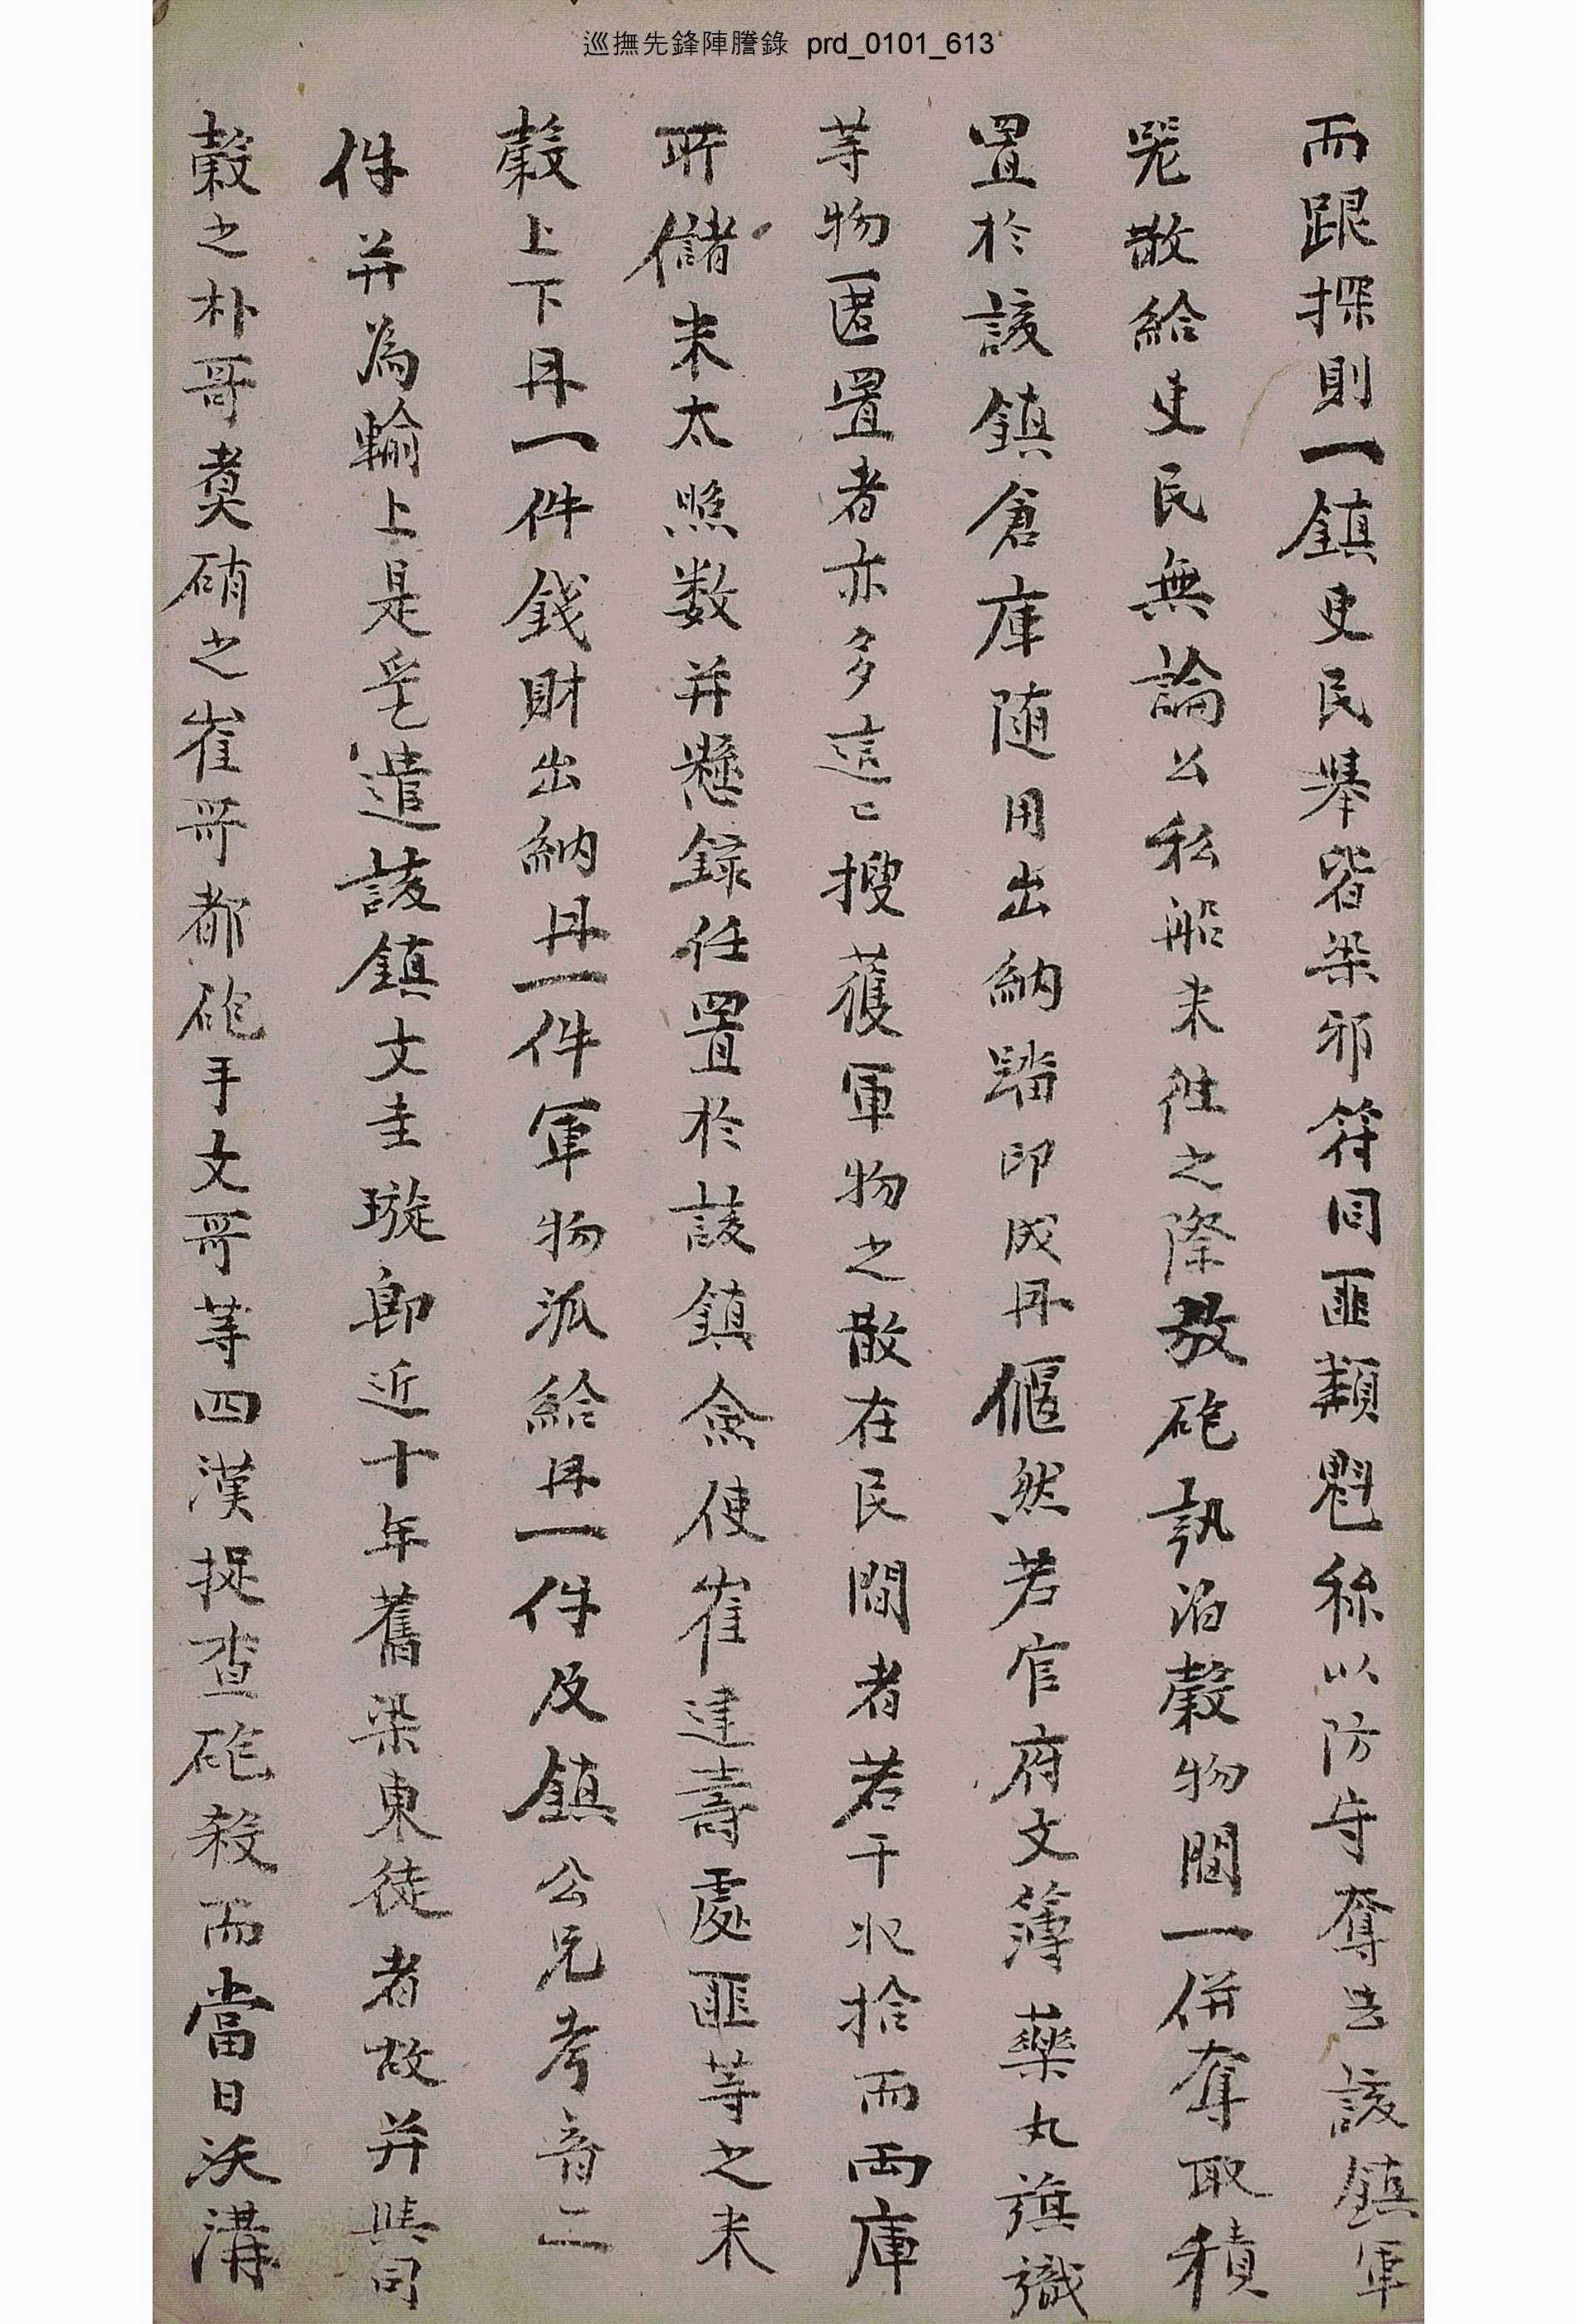 巡撫先鋒陣謄錄 prd_0101_613
而跟探則一鎮吏民擧皆染邪符同匪類魁稱以防守奪去該鎮軍
器散給吏民無論公私船來往之際放砲執泊穀物間一併奪取積
置於該鎮倉庫随用出納踏印成冊偃然若官府文簿藥丸旗織
等物匿置者亦多這這搜獲軍物之散在民間者若干收拾而両庫
所儲米太照数并懸錄任置於該鎮僉使崔建壽處匪等之米
穀上下冊一件錢財出納冊一件軍物派給冊一件及鎮公兄考音二
件并為輸上是乎㢱遣該鎮文圭璇郞近十年舊染東徒者故并與同
穀之朴哥奠碃之崔哥都砲手文哥等四漢捉查砲殺而當日沃溝